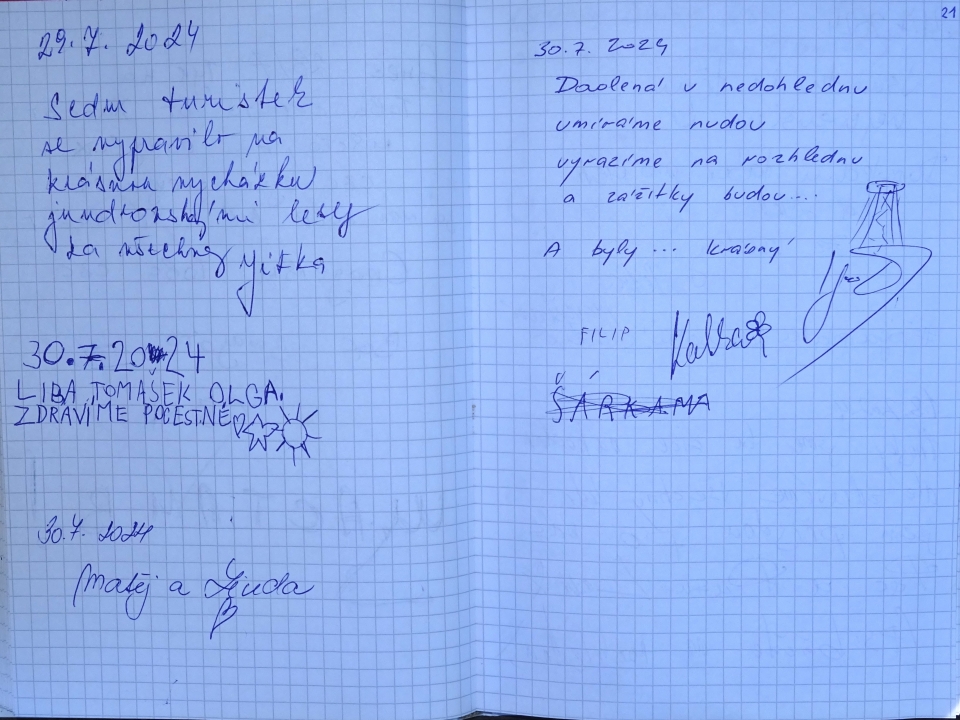 29.7. 2024
Sedm turistek
se vypravilo na
krásnou vycházku
jundrovskými lesy
za všechny Jitka
30.7.2024
LIBA TOMAŠEK OLGA.
ZDRAVÍME POCESTNÉ
30.7. 2024
Matěj a
21
30.7. 2024
v nedohlednu
umíráme nudou
vyrazíme na rozhlednu
a zážitky budou...
A byly ... krásný
FILIP
ŠÁRKAMA